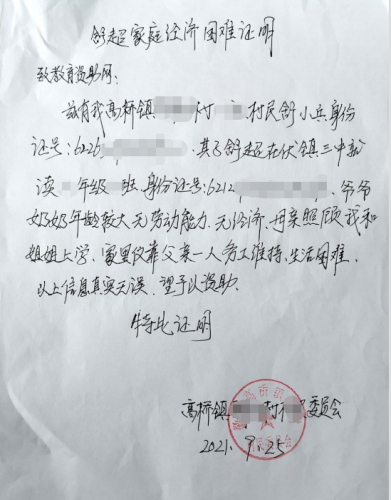 舒超家庭经济困难证明
致教育资助网:
兹有我高桥镇 村 村民舒小兵身份
证号:6226 其子舒超在伏镇三中就
读 年级 班,身份证号:6212 ,爷爷
奶奶年龄较大无劳动能力,无经济,母亲照顾我和
姐姐上学,家里仅靠父亲一人务工维持,生活困难,
以上信息真实无误,望予以资助。
特此证明
高桥镇 村 委员会
2021. 9.25